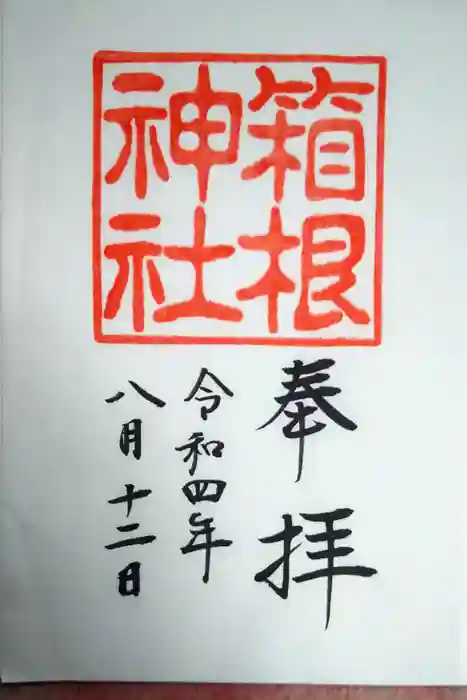 箱根
神社
奉拝
令和四年
八月十二日